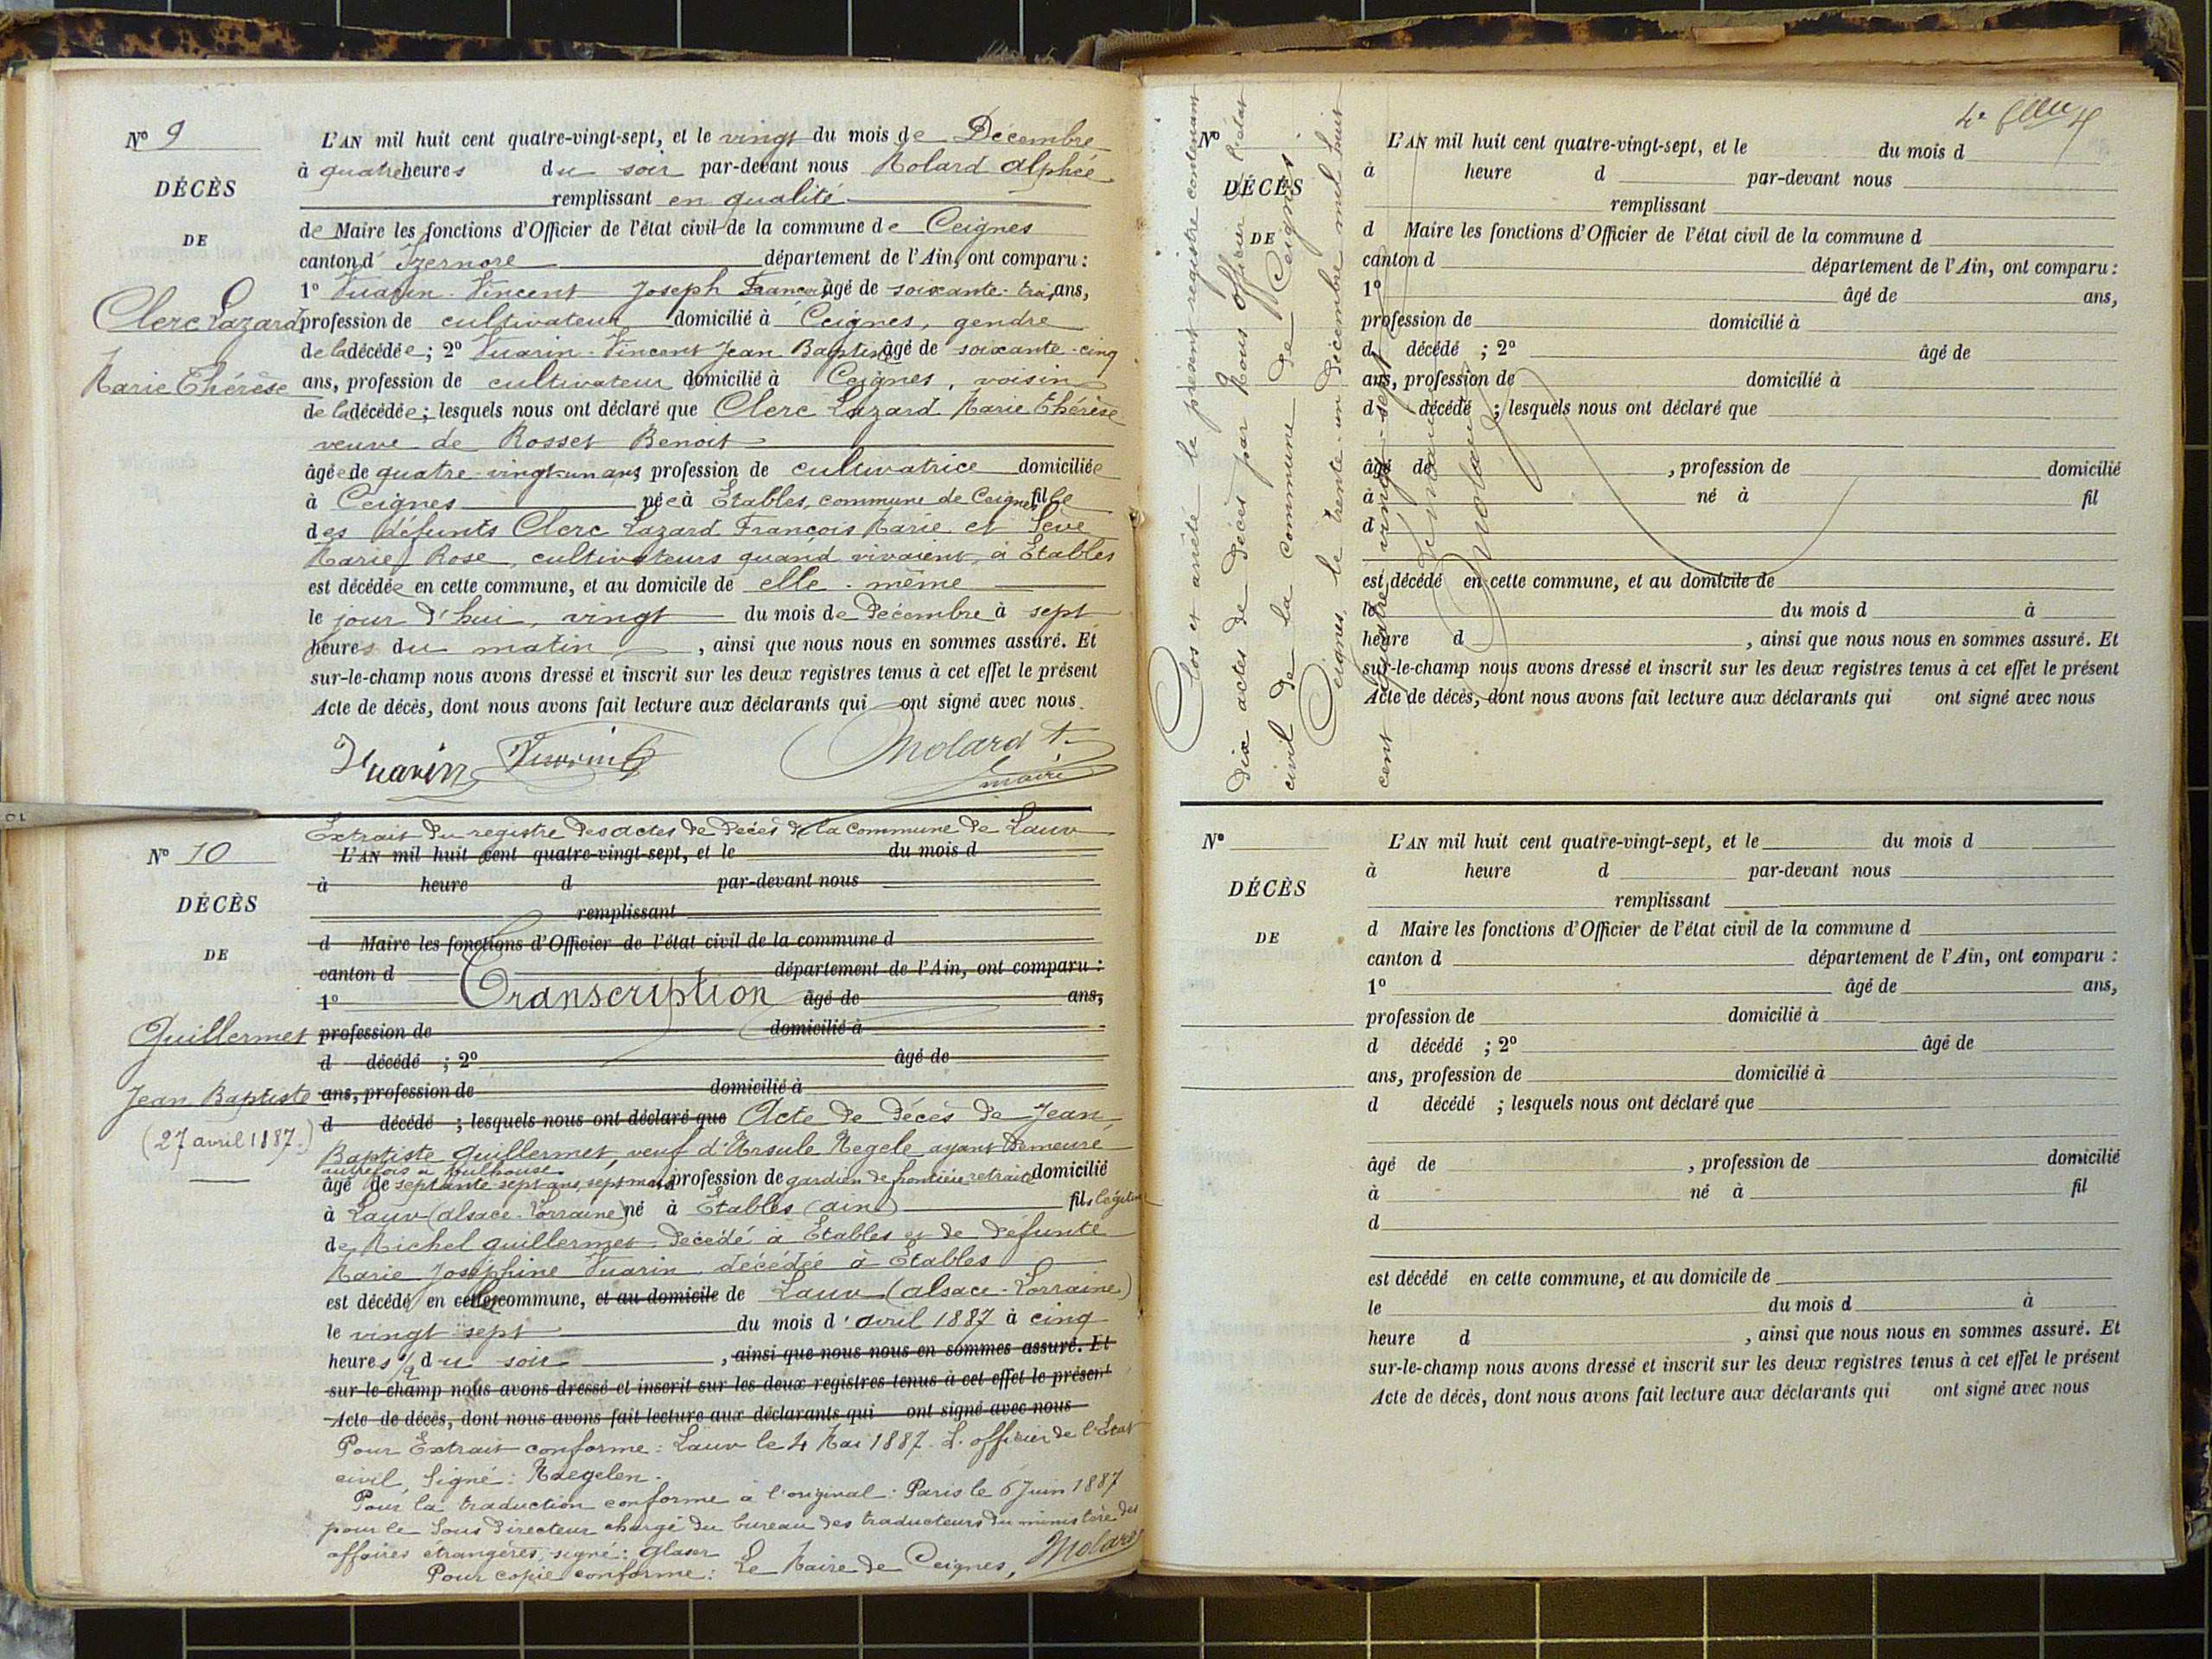 Nº 9
DÉCÈS
DE
Clerc Lazard
Marie Thérèse
L'AN mil huit cent quatre-vingt-sept, et le vingt du mois de Décembre
à quatre heures du soir par-devant nous Molard Alphée
remplissant en qualité
de Maire les fonctions d'Officier de l'état civil de la commune de Ceignes
canton d'Izernore département de l'Ain, ont comparu :
1º Vuarin-Vincent Joseph François âgé de soixante-trois ans,
profession de cultivateur domicilié à Ceignes, gendre
de la décédée ; 2º Vuarin-Vincent Jean Baptiste âgé de soixante-cinq
ans, profession de cultivateur domicilié à Ceignes, voisin
de la décédée ; lesquels nous ont déclaré que Clerc Lazard Marie Thérèse
veuve de Rosset Benoit
âgée de quatre-vingt-un ans, profession de cultivatrice domiciliée
à Ceignes née à Etables, commune de Ceignes fille
des défunts Clerc Lazard François Marie et Sève
Marie Rose, cultivateurs quand vivaient, à Etables
est décédée en cette commune, et au domicile de elle-même
le jour d'hui, vingt du mois de Décembre à sept
heures du matin, ainsi que nous nous en sommes assuré. Et
sur-le-champ nous avons dressé et inscrit sur les deux registres tenus à cet effet le présent
Acte de décès, dont nous avons fait lecture aux déclarants qui ont signé avec nous.
Vuarin Vuarin Molard A.
maire
Extrait du registre des actes de décès de la commune de Lauw
Nº 10
DÉCÈS
DE
Guillermet
Jean Baptiste
(27 avril 1887.)
L'AN mil huit cent quatre-vingt-sept, et le du mois d
à heure d par-devant nous
remplissant
d Maire les fonctions d'Officier de l'état civil de la commune d
canton d département de l'Ain, ont comparu :
1º Transcription âgé de ans,
profession de domicilié à
d décédé ; 2º âgé de
ans, profession de domicilié à
d décédé ; lesquels nous ont déclaré que Acte de décès de Jean
Baptiste Guillermet, veuf d'Ursule Negele ayant demeuré
autrefois à Mulhouse
âgé de septante-sept ans, sept mois profession de gardien de frontière retraité domicilié
à Lauw (alsace-Lorraine) né à Etables (ain) fils légitime
de Michel Guillermet décédé à Etables et de défunte
Marie Joséphine Vuarin, décédée à Etables
est décédé en cette commune, et au domicile de Lauw (alsace-Lorraine)
le vingt sept du mois d'avril 1887 à cinq
heures 1/2 du soir, ainsi que nous nous en sommes assuré. Et
sur-le-champ nous avons dressé et inscrit sur les deux registres tenus à cet effet le présent
Acte de décès, dont nous avons fait lecture aux déclarants qui ont signé avec nous
Pour Extrait conforme : Lauw le 4 Mai 1887. L'officier de l'Etat
civil, Signé : Naegelen.
Pour la traduction conforme à l'original : Paris le 6 Juin 1887
pour le Sous Directeur chargé du bureau des traducteurs du ministère des
affaires étrangères, signé : Glaser
Pour copie conforme : Le Maire de Ceignes, Molard
Clos et arrêté le présent registre contenant
dix actes de décès par Nous officier de l'état
civil de la commune de Ceignes.
Ceignes, le trente-un décembre mil huit
cent quatre-vingt-sept
Le Maire
Molard
Nº
DÉCÈS
DE
L'AN mil huit cent quatre-vingt-sept, et le du mois d
à heure d par-devant nous
remplissant
d Maire les fonctions d'Officier de l'état civil de la commune d
canton d département de l'Ain, ont comparu :
1º âgé de ans,
profession de domicilié à
d décédé ; 2º âgé de
ans, profession de domicilié à
d décédé ; lesquels nous ont déclaré que
âgé de , profession de domicilié
à né à fil
d
est décédé en cette commune, et au domicile de
le du mois d à
heure d , ainsi que nous nous en sommes assuré. Et
sur-le-champ nous avons dressé et inscrit sur les deux registres tenus à cet effet le présent
Acte de décès, dont nous avons fait lecture aux déclarants qui ont signé avec nous
Nº
DÉCÈS
DE
L'AN mil huit cent quatre-vingt-sept, et le du mois d
à heure d par-devant nous
remplissant
d Maire les fonctions d'Officier de l'état civil de la commune d
canton d département de l'Ain, ont comparu :
1º âgé de ans,
profession de domicilié à
d décédé ; 2º âgé de
ans, profession de domicilié à
d décédé ; lesquels nous ont déclaré que
âgé de , profession de domicilié
à né à fil
d
est décédé en cette commune, et au domicile de
le du mois d à
heure d , ainsi que nous nous en sommes assuré. Et
sur-le-champ nous avons dressé et inscrit sur les deux registres tenus à cet effet le présent
Acte de décès, dont nous avons fait lecture aux déclarants qui ont signé avec nous